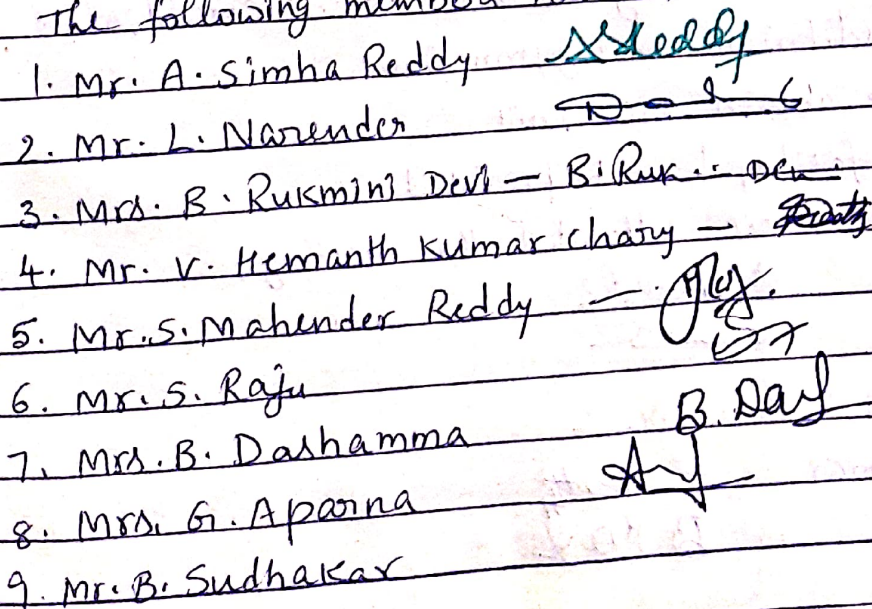 The following
1. Mr. A. Simha Reddy
2. Mr. L. Narender
3. Mrs. B. Rukmini Devi – B. Ruk
4. Mr. V. Hemanth Kumar chary –
5. Mr. S. Mahender Reddy –
6. Mr. S. Raju
7. Mrs. B. Dashamma B. Das
8. Mrs. G. Aparna
9. Mr. B. Sudhakar